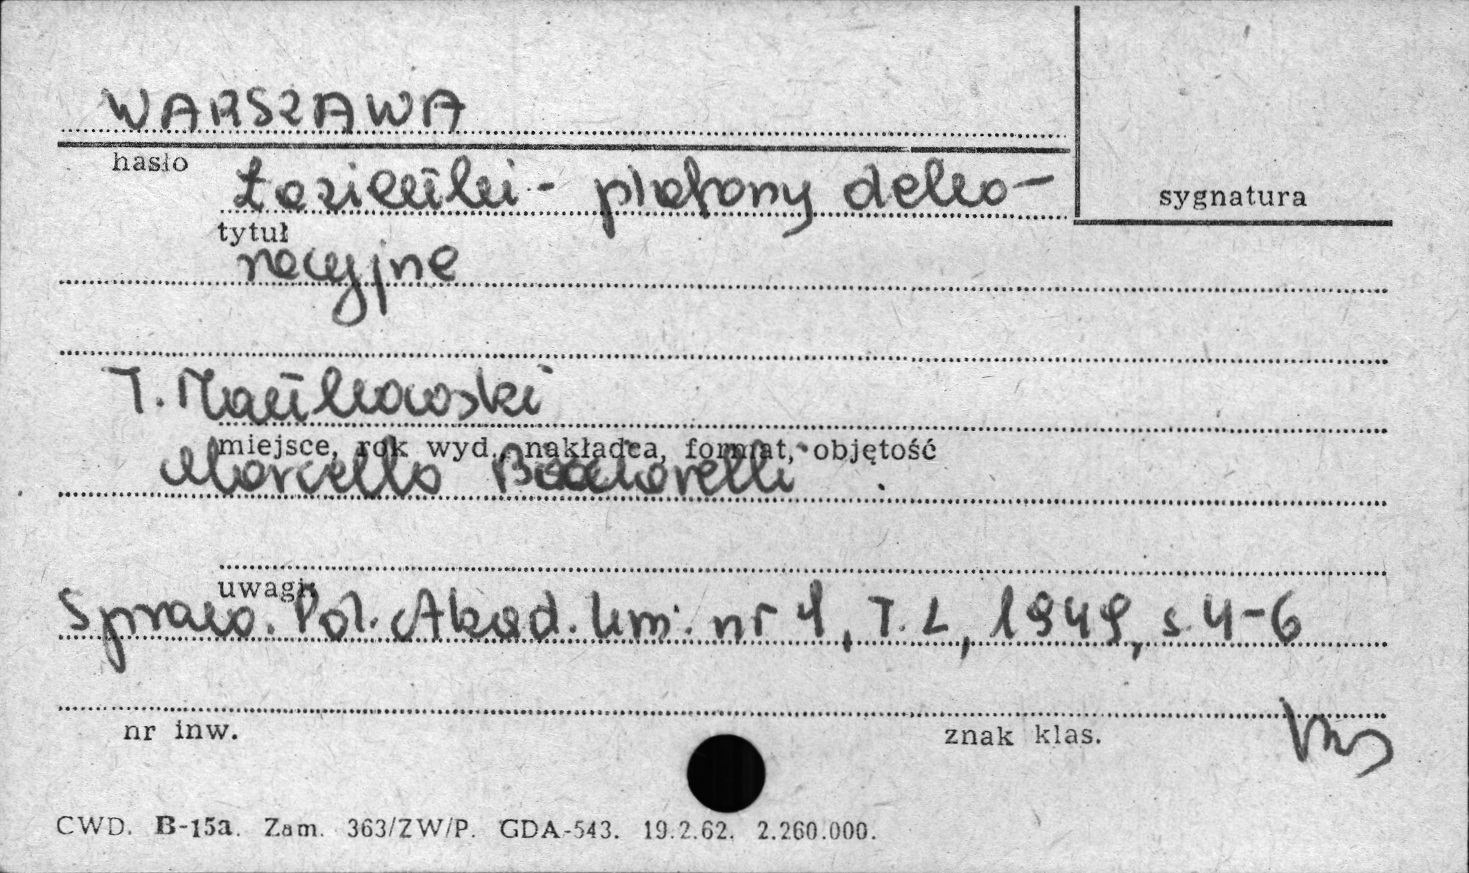 WARSZAWA
hasło
sygnatura
Łazienki - plafony deko-
tytuł
racyjne
T. Mańkowski
miejsce, rok wyd., nakładca, format, objętość
Marcello Bacciarelli
uwagi
Spraw. Pol. Akad. Um. nr 1, T. L, 1949, s. 4-6
nr inw.
znak klas.
CWD. B-15a. Zam. 363/ZW/P. GDA-543. 19.2.62. 2.260.000.